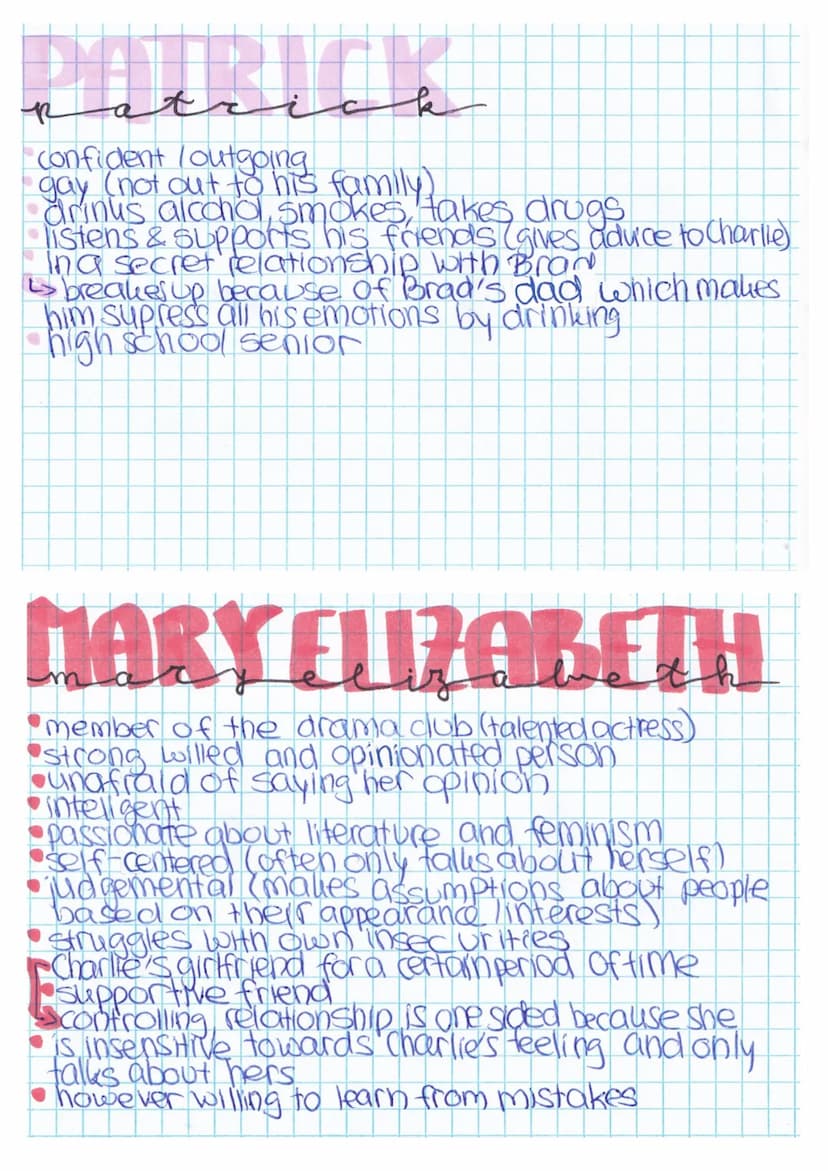 PATRICK
patrick
confident / outgoing
gay (not out to his family)
drinks alcohol, smokes, takes drugs
listens & supports his friends (gives advice to Charlie)
In a secret relationship with Brad
↳ breakes up because of Brad's dad which makes
him supress all his emotions by drinking
high school senior
MARY ELIZABETH
mary elizabeth
member of the drama club (talented actress)
strong willed and opinionated person
unafraid of saying her opinion
intelligent
passionate about literature and feminism
self-centered (often only talks about herself)
judgemental (makes assumptions about people
based on their appearance / interests)
struggles with own insecurities
Charlie's girlfriend for a certain period of time
supportive friend
controlling, relationship is one sided because she
is insensitive towards Charlie's feeling and only
talks about hers
however willing to learn from mistakes